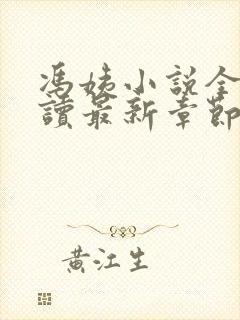 馮姨小說全
讀最新章節
黃江生